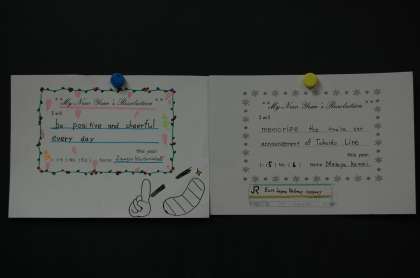 My New Year's Resolution
I will
be positive and cheerful
every day
this year.
name
My New Year's Resolution
I will
memorize the train car
announcement of Tokaido Line
this year.
name
JR East Japan Railway Company